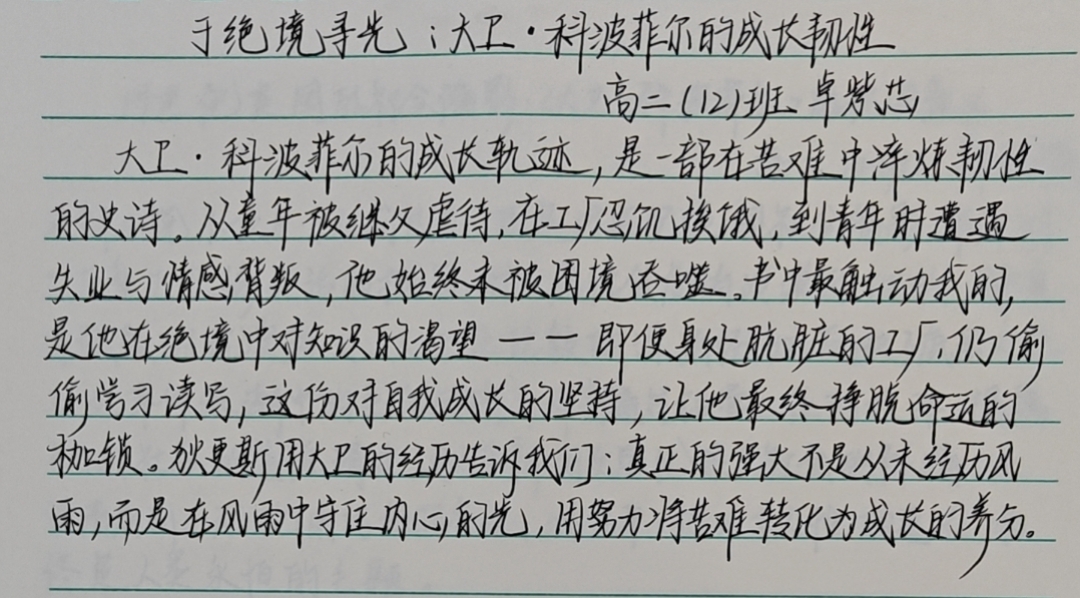 于绝境寻光：大卫·科波菲尔的成长韧性
高二(12)班 卓紫芯
大卫·科波菲尔的成长轨迹，是一部在苦难中淬炼韧性
的史诗。从童年被继父虐待，在工厂忍饥挨饿，到青年时遭遇
失业与情感背叛，他始终未被困境吞噬。书中最触动我的，
是他在绝境中对知识的渴望——即便身处肮脏的工厂，仍偷
偷学习读写，这份对自我成长的坚持，让他最终挣脱命运的
枷锁。狄更斯用大卫的经历告诉我们：真正的强大不是从未经历风
雨，而是在风雨中守住内心的光，用努力将苦难转化为成长的养分。